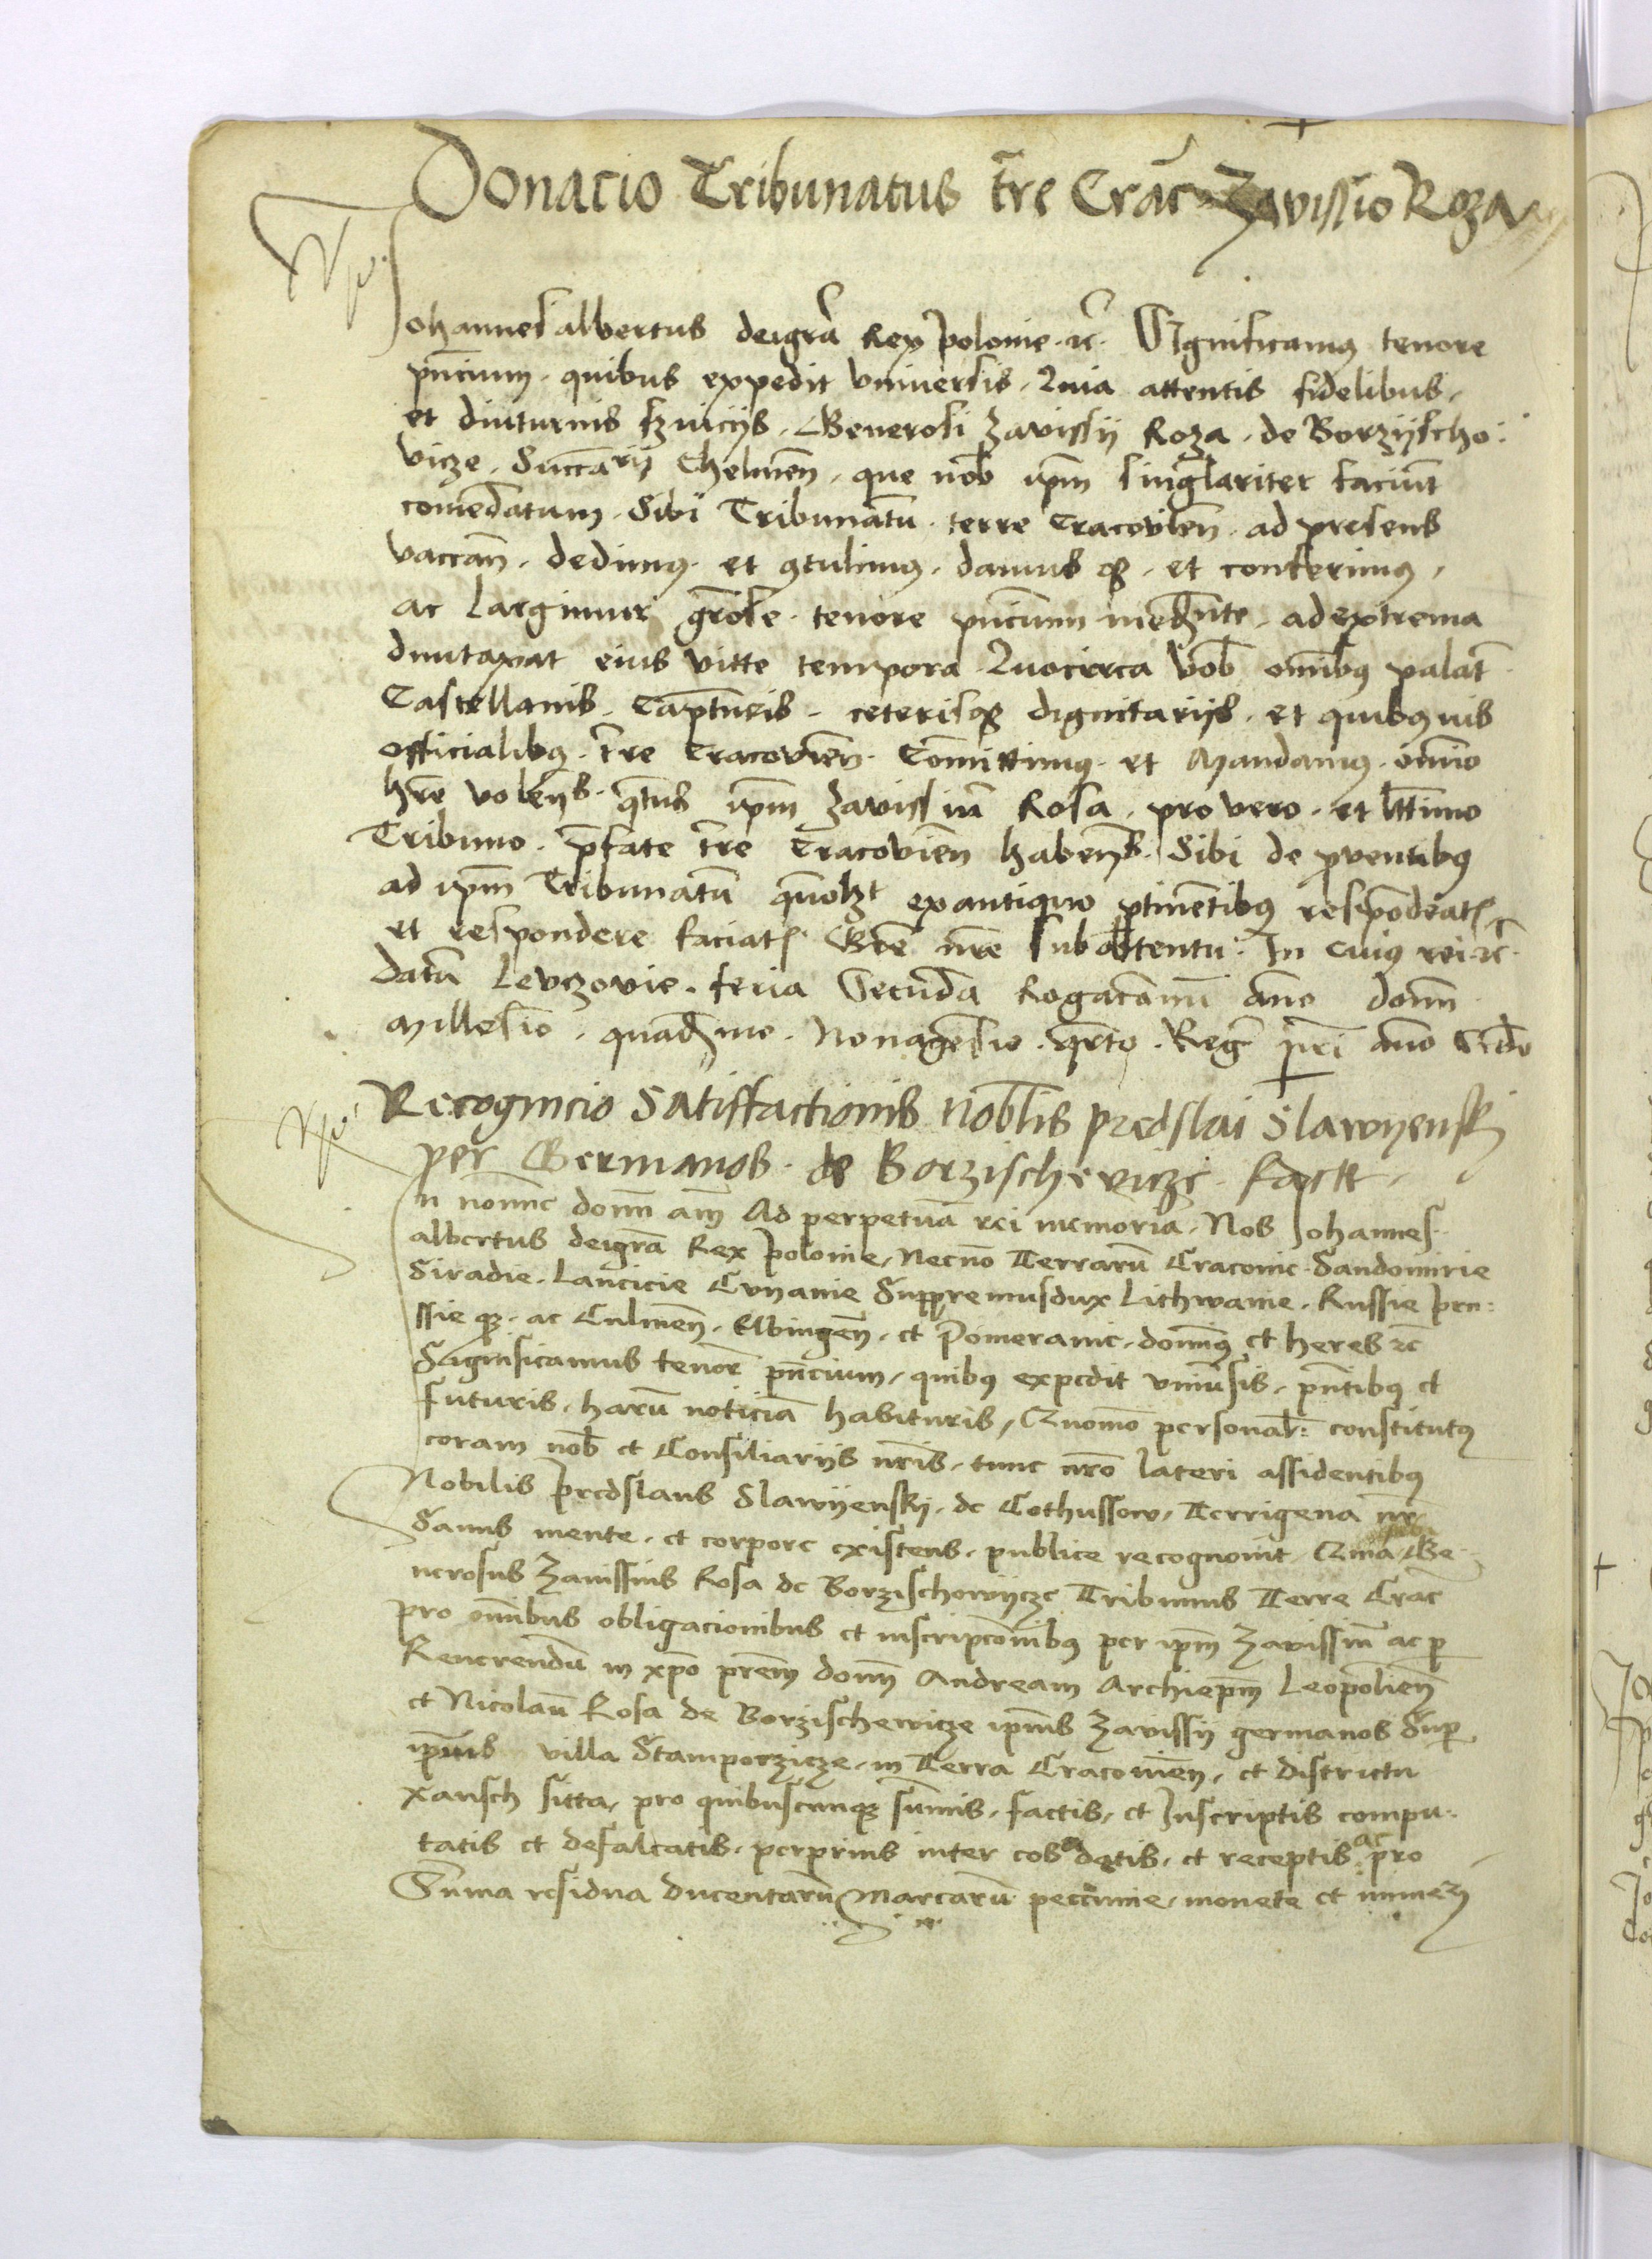 Donacio Tribunatus tre Crac Zavissio Roza
Johannes albertus deigra Rex polonie ·rc· Significamus tenore
pncium · quibus expedit vniuersis · Quia attentis fidelibus ·
et diuturnis seruicijs · Generosi Zavissij Roza · de Borzijscho:
vicze · Succarij Chelmen · que nob ipm singlariter faciunt
comedatum · Sibi Tribunatu · terre Cracovien · ad presens
vaccan · dedimus · et ꝯtulimus · damus qʒ · et conferimus ·
ac largimur grose · tenore pncium mediante · ad extrema
duntaxat eius vitte tempora · Quocirca vob omibus palat
Castellanis · Captureis · ceterisqʒ dignitarijs · et quibusuis
officialibus · tre Cracovien · Comittimus · et Mandamus · omnio
hre volens · qtus ipm Zavissiu Rosa · pro vero · et lttimo
Tribuno · pfate tre Cracovien habens · Sibi de proventibus
ad ipm Tribunatu quolt ex antiquo ptinetibus respodeatis
et respondere faciatis Gre nre sub obtentu: In cuius rei ·rc·
datu Levczovie · feria Secuda Rogacionu Ano domi
Millesio · quadrino · Nonagesio · qrto · Reg nri ano Scdo
Recognicio Satisfactionis Noblis predslai Slawyenskj
per Germanos · de Borzischevicze · fact
In nomine domi am Ad perpetua rei memoria · Nos Johannes
albertus deigra Rex polonie, Necno Terraru Cracouie · Sandomirie
Siradie · Lancicie Cuyauie Suppremusdux Lithwanie · Russie pru:
ssie qʒ · ac Culmen · Elbingen · et Pomeranie · domis et heres rc
Significamus tenor pncium, quibus expedit vniuersis · pntibus et
futuris · haru noticia habituris, Quomo personal: constitutus
coram nob et Consiliarijs nris · tunc nro lateri assidentibus
Nobilis predslaus Slawyenskj · de Cothussow, Terrigena nr
Sanus mente · et corpore existens · publice recognouit · Quia Ge-
nerosus Zauissius Rosa de Borzischowycze Tribunus Terre Crac
pro omibus obligacionibus et inscripcoibus per ipm Zavissiu ac p
Reuerendu in xpo prem domi Andream Archiepm Leopolien
et Nicolau Rosa de Borzischewicze ipius Zavissij germanos Sup
ipius villa Stamporzicze · in Terra Cracouien, et districtu
Xansch sitta, pro quibuscunqʒ sumis · factis, et Inscriptis compu:
tatis et defalcatis, perprius inter eos datis, et receptis ac pro
Suma residua ducentaru Marcaru peccunie, monete et numeri